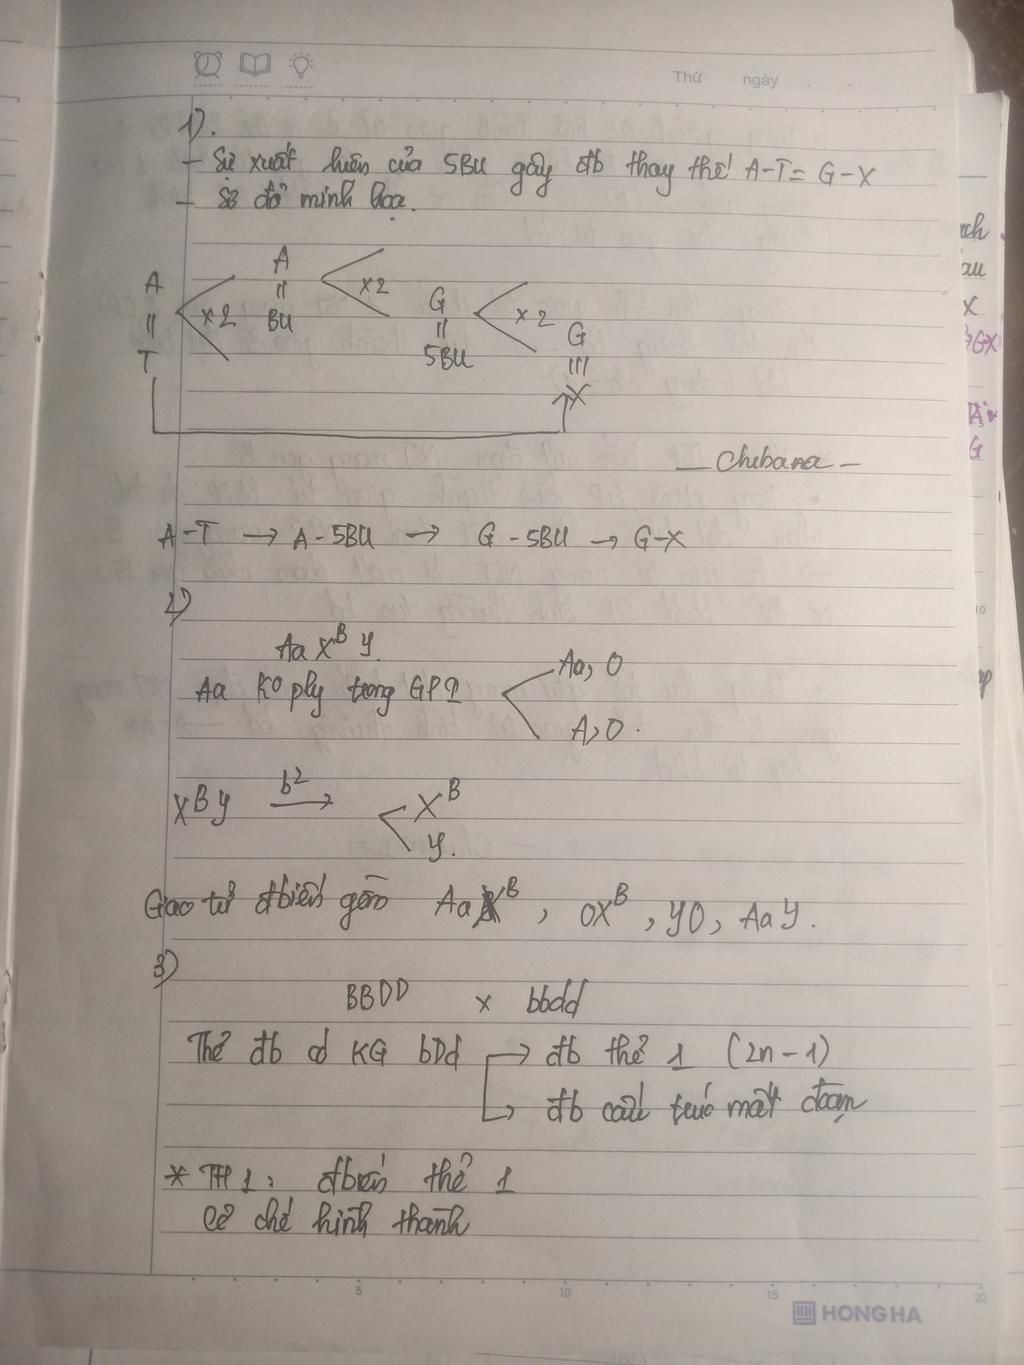 Thứ ngày
1).
- Sự xuất hiện của 5BU gây đb thay thế A-T = G-X
- Sơ đồ minh họa.
A
=
T
x2
A
=
BU
x2
G
=
5BU
x2
G
≡
X
- Chibana -
A-T → A-5BU → G-5BU → G-X
2)
Aa X^B Y.
Aa Ko ply trong GP1 Aa, 0
A, 0.
X^B Y b² → X^B
Y.
Giao tử đbiến gồm AaX^B, 0X^B, Y0, AaY.
3)
BBDD x bbdd
Thể đb có KG bDd → đb thể 1 (2n-1)
→ đb cấu trúc mất đoạn
* TH1: đbiến thể 1
Cơ chế hình thành
5 10 15 20
HH HONG HA
X
G-X
G
10